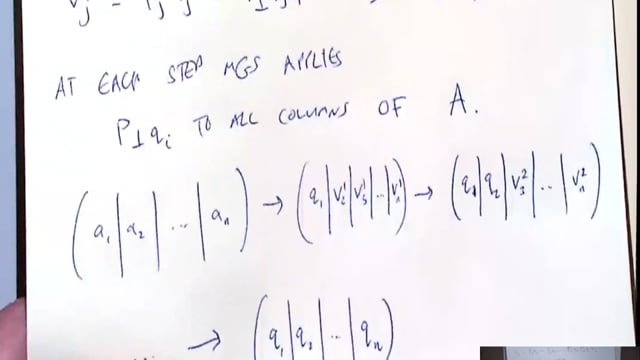 AT EACH STEP MGS APPLIES
P⊥qᵢ TO ALL COLUMNS OF A.
(a₁|a₂|...|aₙ) → (q₁|v₂¹|v₃¹|...|vₙ¹) → (q₁|q₂|v₃²|...|vₙ²)
→ (q₁|q₂|...|qₙ)